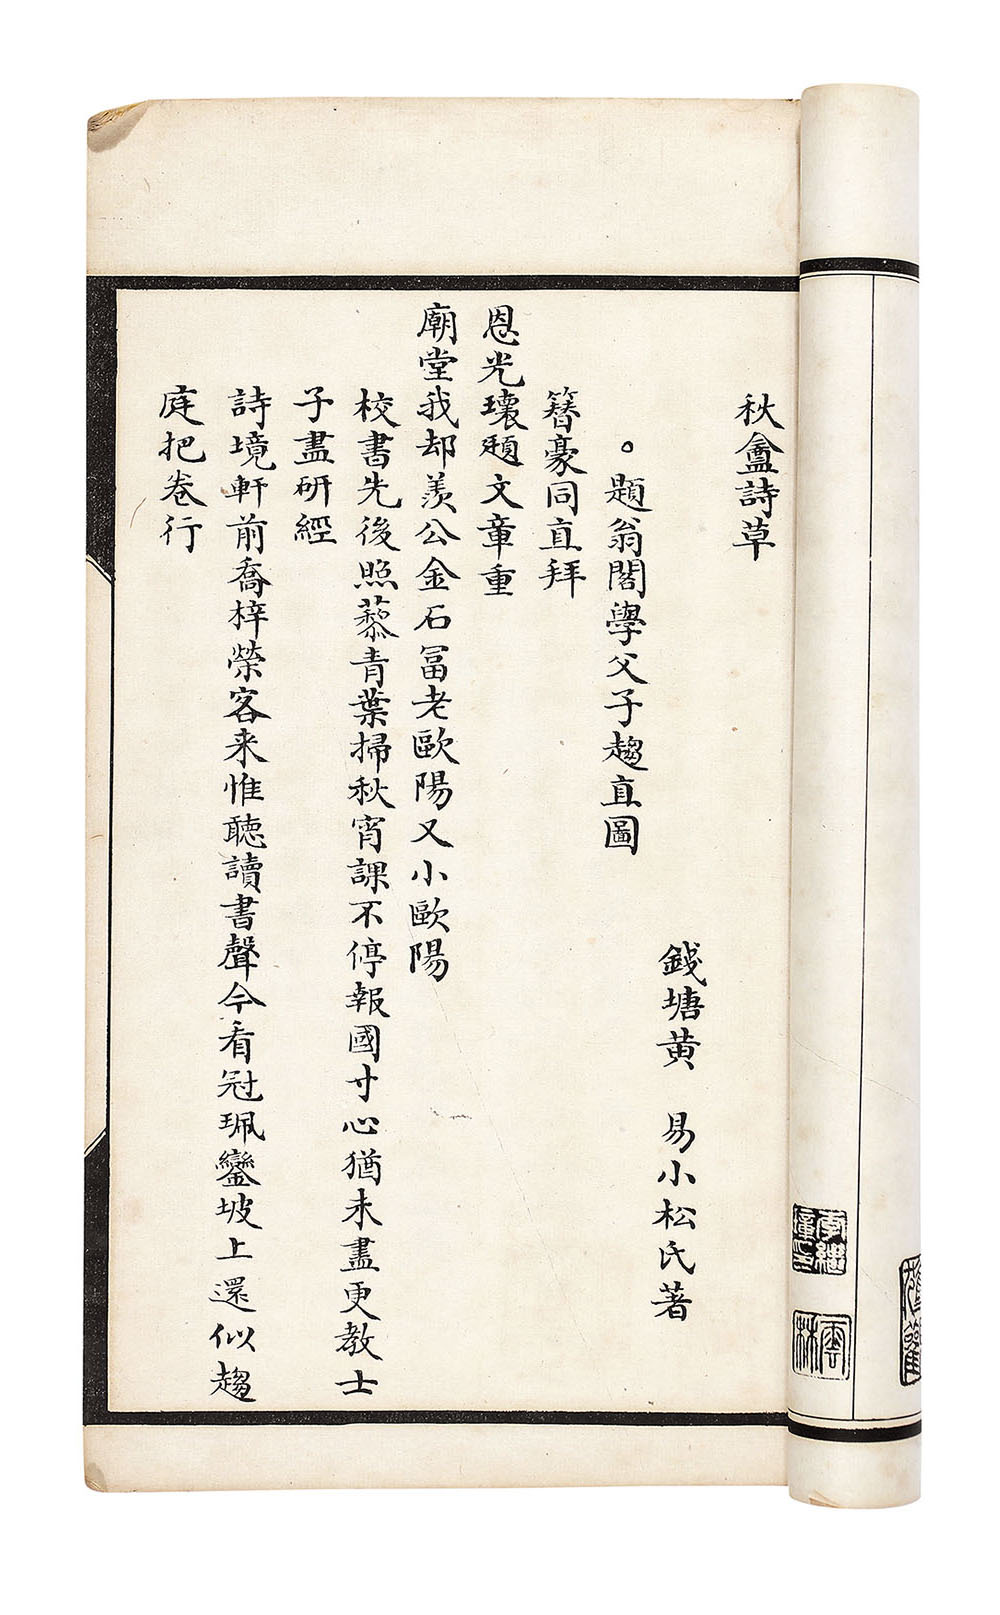 秋盦詩草
錢塘黄　易小松氏著
。題翁閣學父子趨直圖
簪豪同直拜
恩光瓌題文章重
廟堂我却羨公金石冨老歐陽又小歐陽
校書先後照藜青葉掃秋宵課不停報國寸心猶未盡更教士
子盡研經
詩境軒前喬梓榮客来惟聽讀書聲今看冠珮鑾坡上還似趨
庭把卷行
雲林